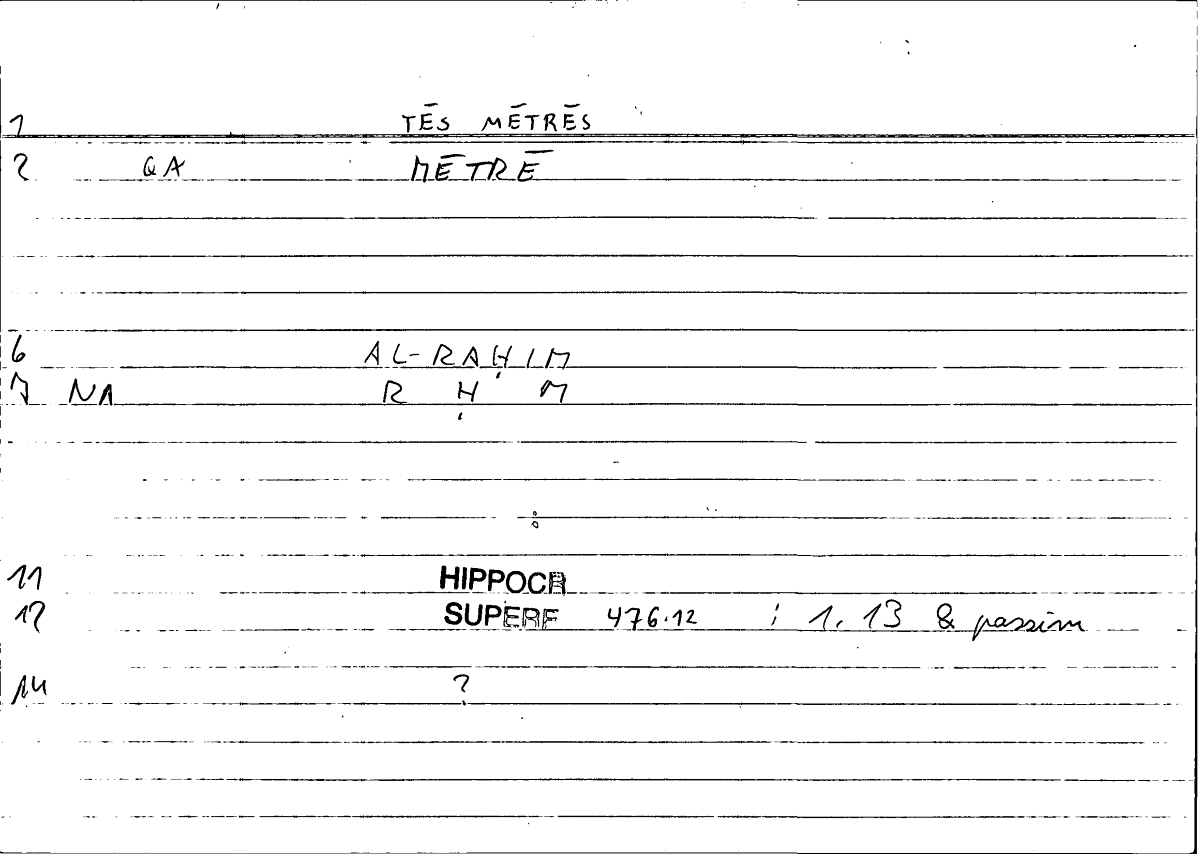 1 TĒS MĒTRĒS
2 GA MĒTRĒ
6 AL-RAḤIM
7 NA R Ḥ M
11 HIPPOCR
12 SUPERF 476.12 ; 1, 13 & passim
14 ?